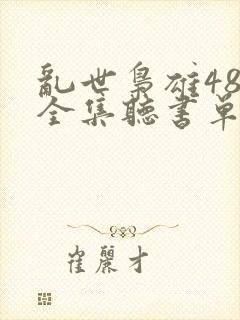 亂世梟雄48
全集聽書單
崔麗才